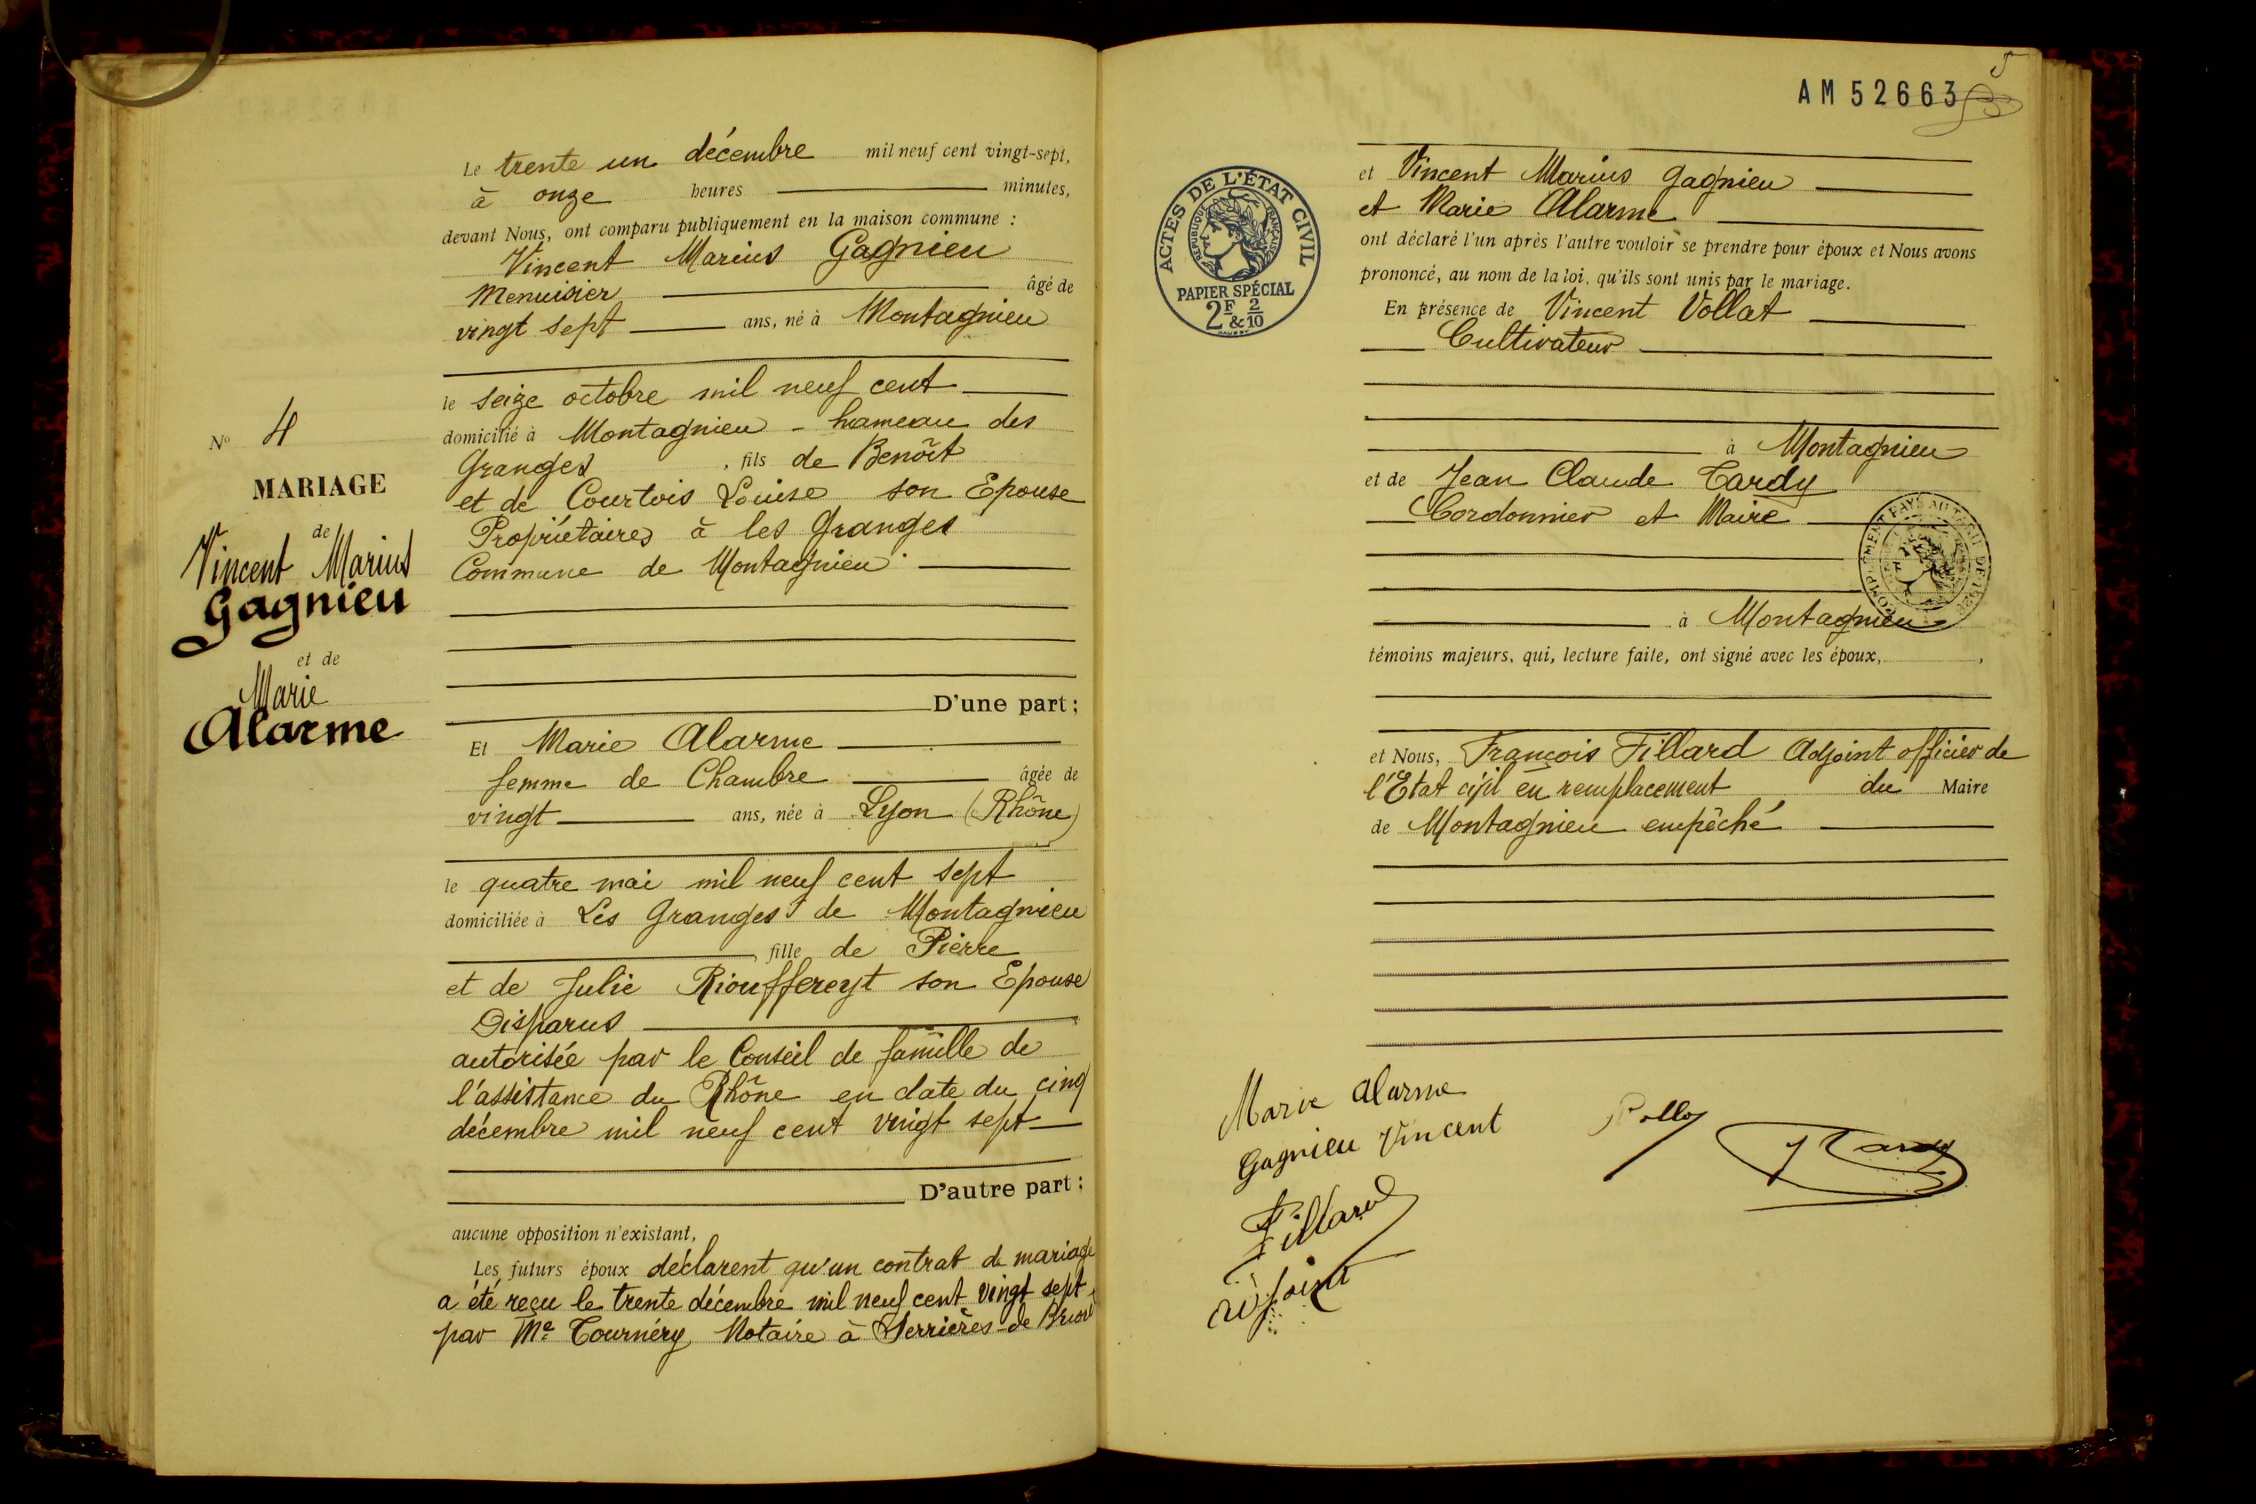 N° 4
MARIAGE
de
Vincent Marius
Gagnieu
et de
Marie
Alarme
Le trente un décembre mil neuf cent vingt-sept,
à onze heures minutes,
devant Nous, ont comparu publiquement en la maison commune :
Vincent Marius Gagnieu
Menuisier âgé de
vingt sept ans, né à Montagnieu
le seize octobre mil neuf cent
domicilié à Montagnieu - hameau des
Granges, fils de Benoît
et de Courtois Louise son Epouse
Propriétaires à les Granges
Commune de Montagnieu.
D'une part ;
Et Marie Alarme
femme de Chambre âgée de
vingt ans, née à Lyon (Rhône)
le quatre mai mil neuf cent sept
domiciliée à Les Granges de Montagnieu
, fille de Pierre
et de Julie Riouffereyt son Epouse
Disparus
autorisée par le Conseil de famille de
l'assistance du Rhône en date du cinq
décembre mil neuf cent vingt sept
D'autre part ;
aucune opposition n'existant,
Les futurs époux déclarent qu'un contrat de mariage
a été reçu le trente décembre mil neuf cent vingt sept
par Me Tournéry Notaire à Serrières-de Briord
5
AM52663
ACTES DE L'ÉTAT CIVIL
RÉPUBLIQUE FRANÇAISE
PAPIER SPÉCIAL
2F & 2/10
et Vincent Marius Gagnieu
et Marie Alarme
ont déclaré l'un après l'autre vouloir se prendre pour époux et Nous avons
prononcé, au nom de la loi, qu'ils sont unis par le mariage.
En présence de Vincent Vollat
Cultivateur
à Montagnieu
et de Jean Claude Tardy
Cordonnier et Maire
à Montagnieu
témoins majeurs, qui, lecture faite, ont signé avec les époux,
et Nous, François Fillard Adjoint officier de
l'Etat civil en remplacement du Maire
de Montagnieu empêché
Marie Alarme
Gagnieu Vincent
Tardy
Fillard
adjoint